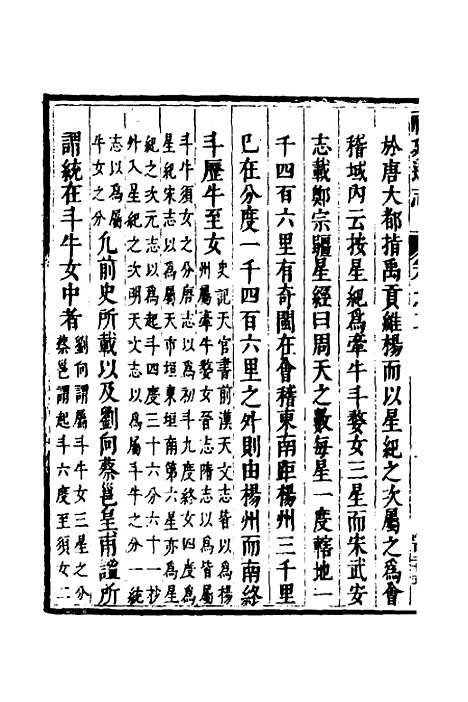 於唐大都指禹貢維楊而以星紀之次屬之爲會
稽域內云按星紀爲牽牛斗婺女三星而宋武安
志載鄭宗疆星經曰周天之數每星一度轄地一
千四百六里有奇閩在會稽東南距楊州三千里
已在分度一千四百六里之外則由楊州而南終
斗歷牛至女
史記天官書前漢天文志皆以爲楊
州屬牽牛婺女晉志隋志以爲皆屬
斗牛須女之分唐志以爲初斗九度終女四度爲
星紀宋志以爲屬天市垣東垣南第六星亦爲星
紀之次元志以爲起斗四度三十六分六十一抄
外入星紀之次明天文志以爲屬斗牛之分一統
志以爲屬
牛女之分
凡前史所載以及劉向蔡邕皇甫謐所
謂統在斗牛女中者
劉向謂屬斗牛女三星之分
蔡邕謂起斗六度至須女二